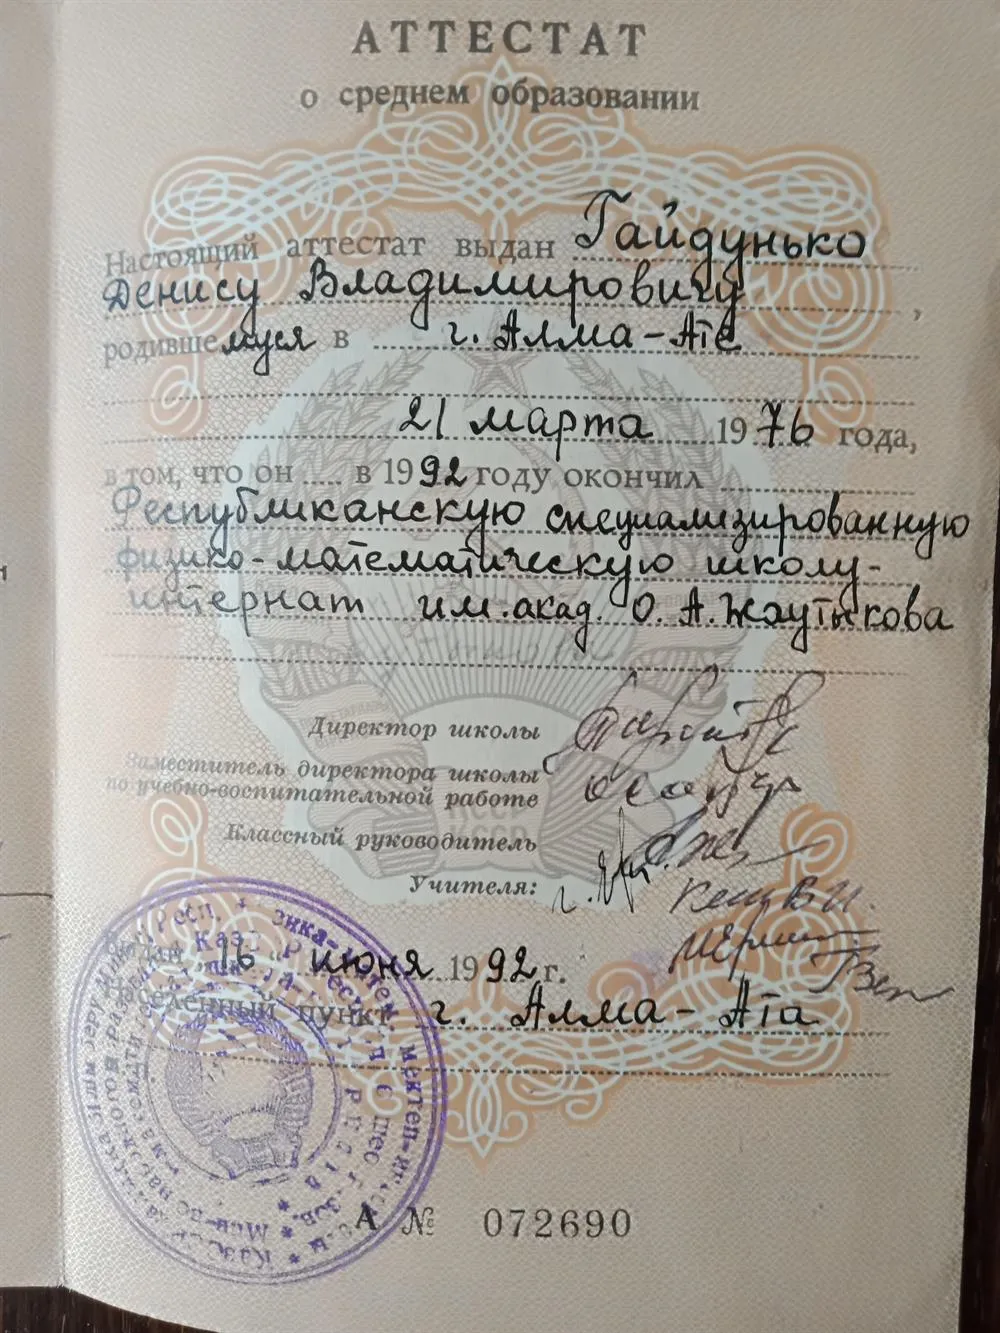 АТТЕСТАТ
о среднем образовании
Настоящий аттестат выдан Гайдунько
Денису Владимировичу,
родившемуся в г. Алма-Ате
21 марта 1976 года,
в том, что он в 1992 году окончил
Республиканскую специализированную
физико-математическую школу-
интернат им. акад. О. А. Жаутыкова
Директор школы
Заместитель директора школы
по учебно-воспитательной работе
Классный руководитель
Учителя:
16 июня 1992 г.
населенный пункт г. Алма-Ата
А № 072690